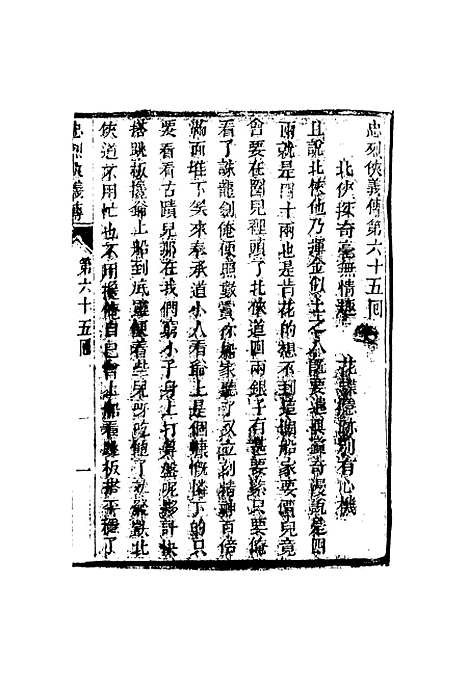 忠烈俠義傳第六十五回
北俠探奇毫無情趣 花蝶隱跡別有心機
且說北俠他乃揮金似土之人既要遇奇漫說是四
兩就是四十兩也是肯花的想不到這個船家要價兒竟
會要在圈兒裡頭了北俠道四兩銀子有甚要緊只要俺
看了誅龍劍俺便照數賞你船家聽了又立刻精神百倍
滿面堆下笑來奉承道小人看爺上是個慷慨憐下的只
要看看古蹟兒那在我們窮小子身上打算盤呢夥計快
搭跳板攙爺上船到底靈便着些兒呀
俠道不用忙也不用攙俺自己會上船看跳板搭平穩了
忠烈俠義傳
第六十五回
一